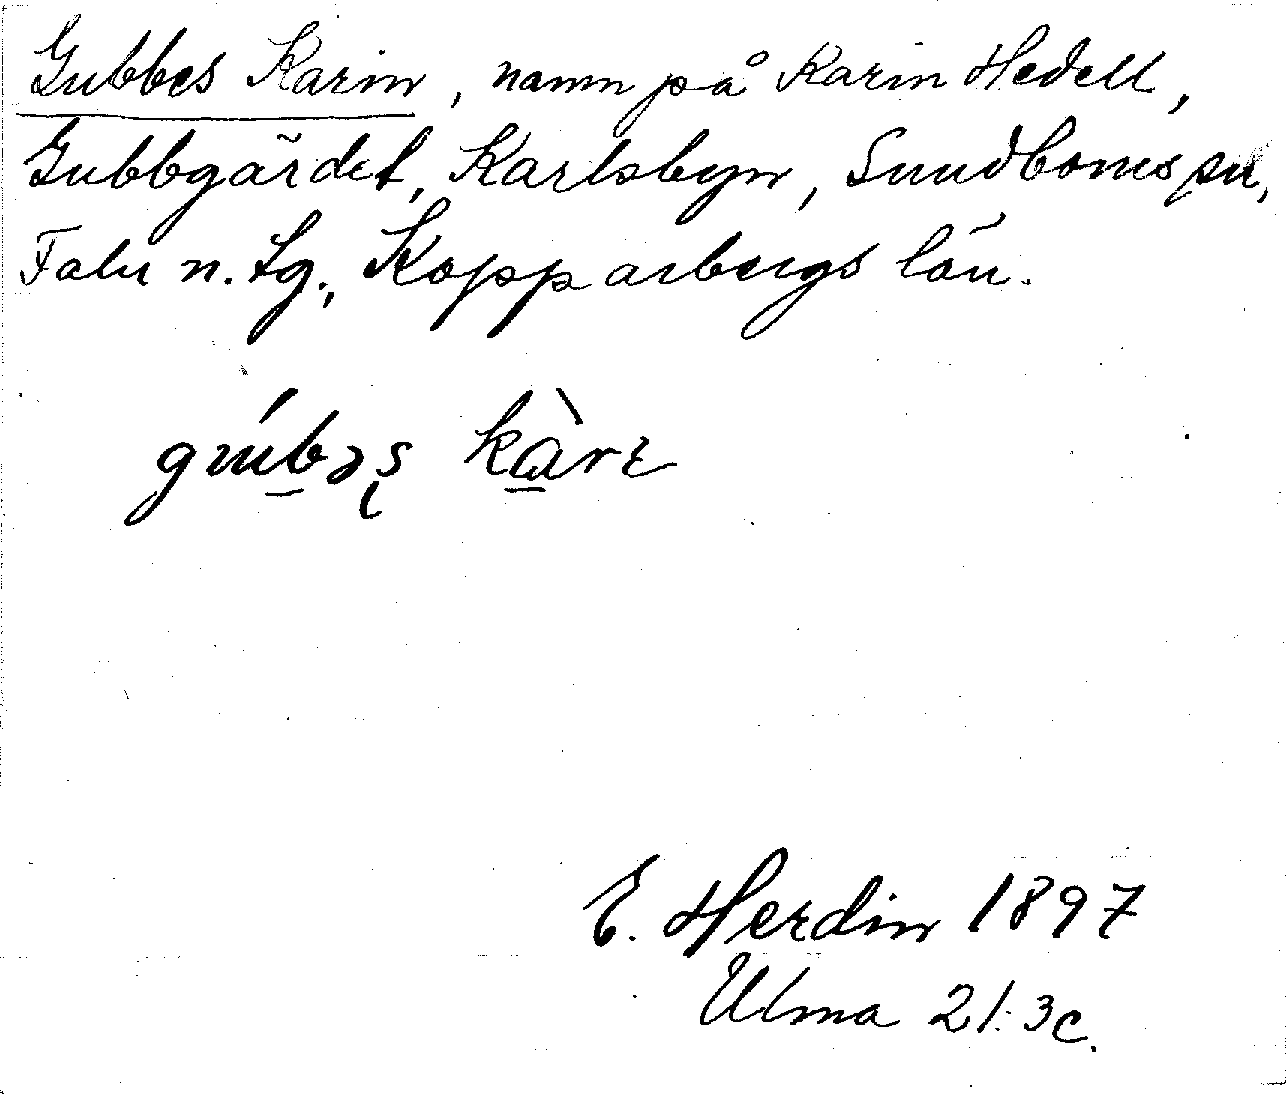 Gubbes Karin, namn på Karin Hedell,
Gubbgärdet, Karlsbyn, Sundborns sn,
Falu n. tg., Kopparbergs län.
gu̇́bəs kàrɛ
E. Herdin 1897
Ulma 21:3c.